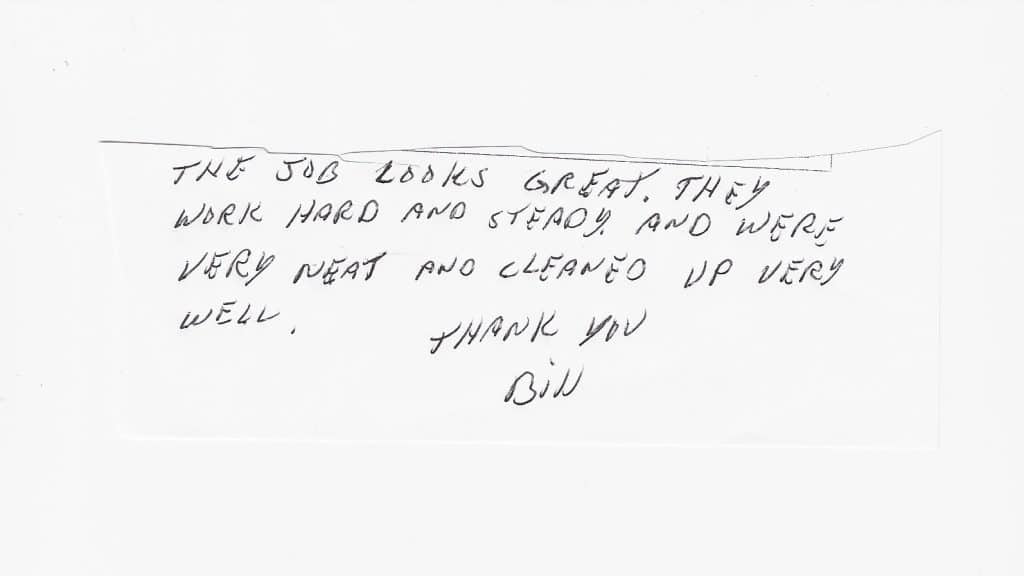 THE JOB LOOKS GREAT. THEY
WORK HARD AND STEADY. AND WERE
VERY NEAT AND CLEANED UP VERY
WELL.
THANK YOU